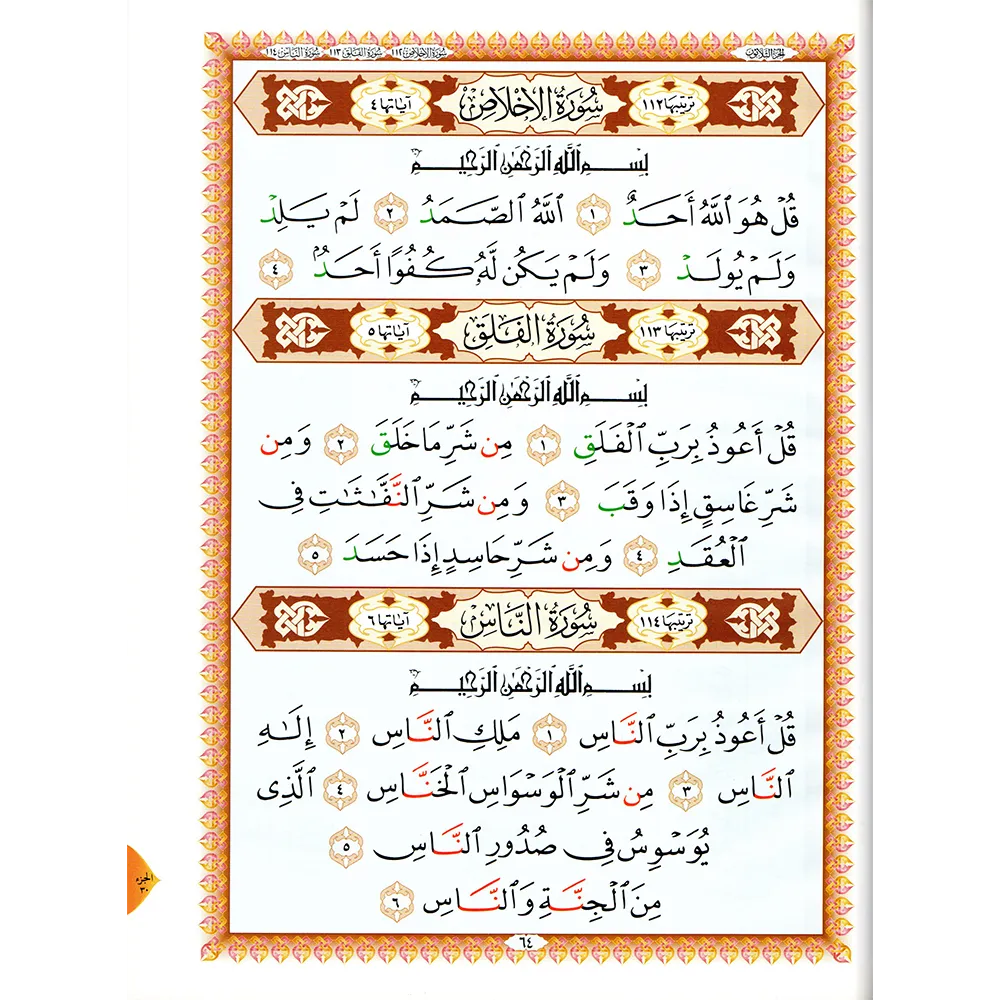 الجزء الثلاثون
سورة الإخلاص ١١٢ سورة الفلق ١١٣ سورة الناس ١١٤
ترتيبها ١١٢ سُورَةُ الإِخْلَاصِ آياتها ٤
بِسْمِ ٱللَّهِ ٱلرَّحْمَٰنِ ٱلرَّحِيمِ
قُلْ هُوَ ٱللَّهُ أَحَدٌ ١ ٱللَّهُ ٱلصَّمَدُ ٢ لَمْ يَلِدْ
وَلَمْ يُولَدْ ٣ وَلَمْ يَكُن لَّهُۥ كُفُوًا أَحَدٌۢ ٤
ترتيبها ١١٣ سُورَةُ الفَلَقِ آياتها ٥
بِسْمِ ٱللَّهِ ٱلرَّحْمَٰنِ ٱلرَّحِيمِ
قُلْ أَعُوذُ بِرَبِّ ٱلْفَلَقِ ١ مِن شَرِّ مَا خَلَقَ ٢ وَمِن
شَرِّ غَاسِقٍ إِذَا وَقَبَ ٣ وَمِن شَرِّ ٱلنَّفَّٰثَٰتِ فِى
ٱلْعُقَدِ ٤ وَمِن شَرِّ حَاسِدٍ إِذَا حَسَدَ ٥
ترتيبها ١١٤ سُورَةُ النَّاسِ آياتها ٦
بِسْمِ ٱللَّهِ ٱلرَّحْمَٰنِ ٱلرَّحِيمِ
قُلْ أَعُوذُ بِرَبِّ ٱلنَّاسِ ١ مَلِكِ ٱلنَّاسِ ٢ إِلَٰهِ
ٱلنَّاسِ ٣ مِن شَرِّ ٱلْوَسْوَاسِ ٱلْخَنَّاسِ ٤ ٱلَّذِى
يُوَسْوِسُ فِى صُدُورِ ٱلنَّاسِ ٥
مِنَ ٱلْجِنَّةِ وَٱلنَّاسِ ٦
الجزء
٣٠
٦٤